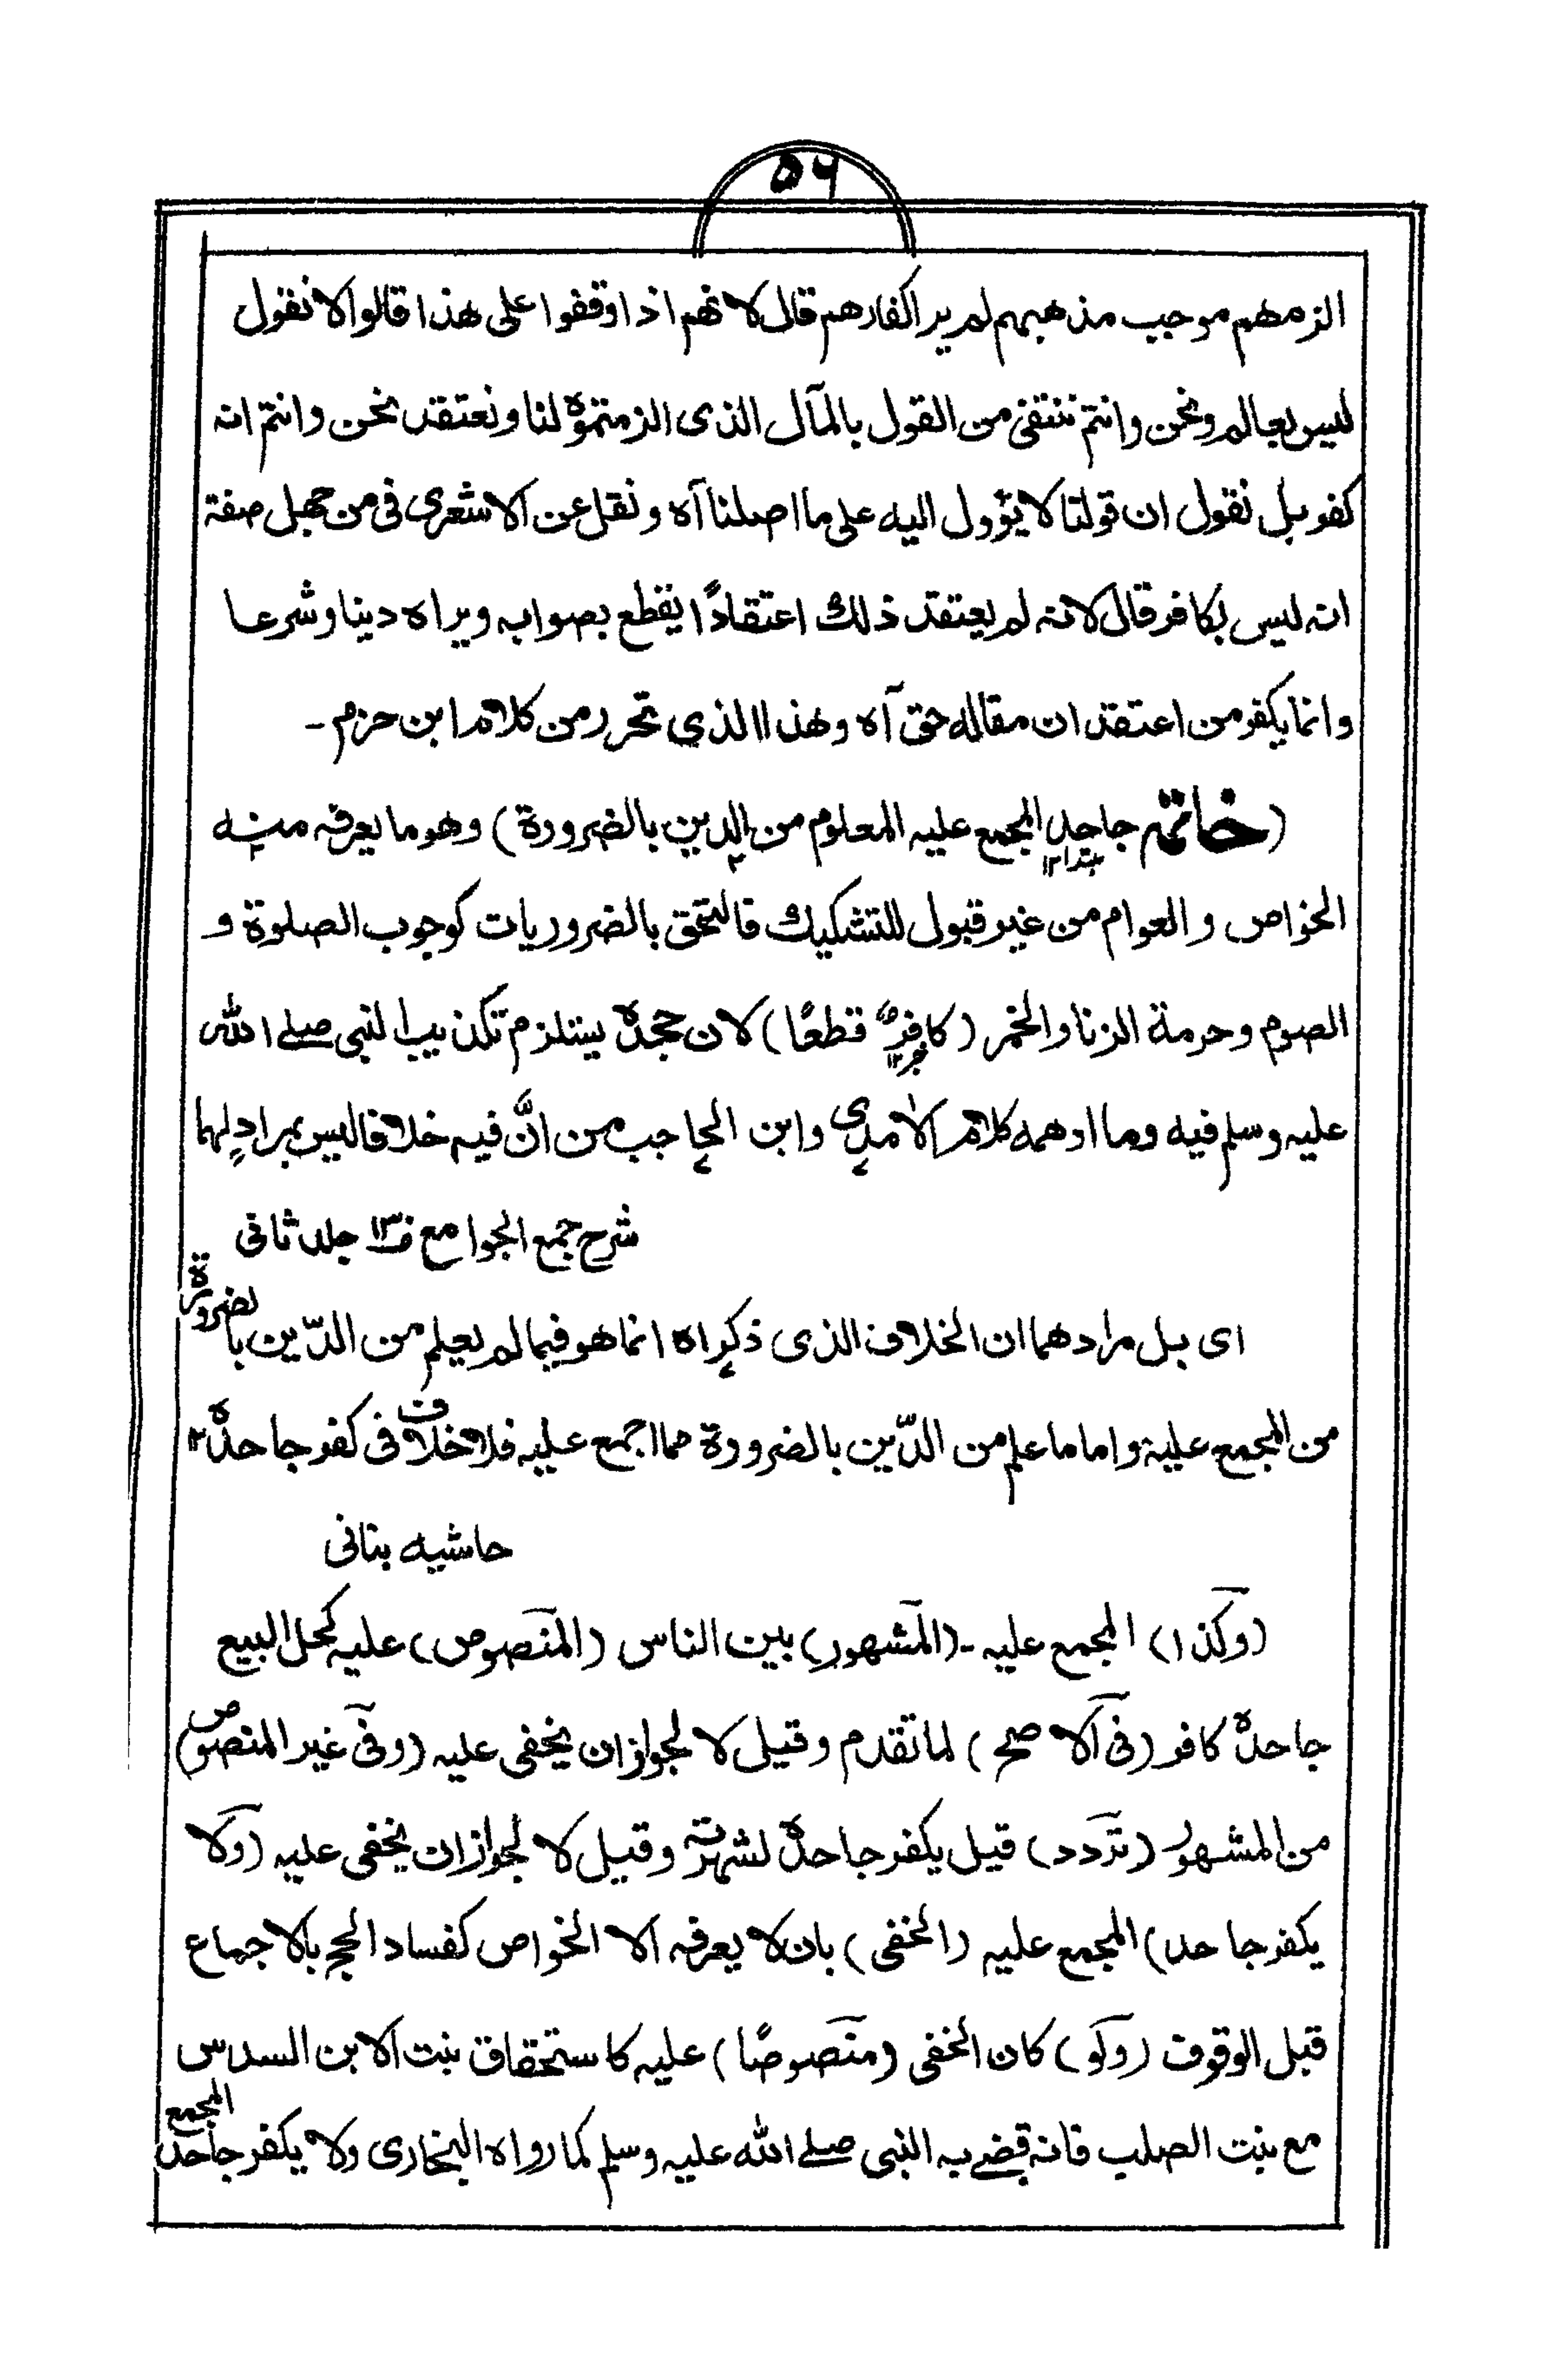 ۵۶
الزمهم موجب مذهبهم لم ير اكفارهم قال لانهم اذا وقفوا على هذا قالوا لا نقول
ليس بعالم ونحن وانتم ننتفى من القول بالمآل الذى الزمتموه لنا ونعتقد نحن وانتم انه
كفر بل نقول ان قولنا لا يؤول اليه على ما اصلنا آه ونقل عن الاشعرى فى من جهل صفة
انه ليس بكافر قال لانه لم يعتقد ذلك اعتقادًا يقطع بصوابه ويراه دينا وشرعا
وانما يكفر من اعتقد ان مقاله حق آه وهذا الذى تحرر من كلام ابن حزم -
(خاتمه جاحد المجمع عليه المعلوم من الدين بالضرورة) وهو ما يعرفه منه
مبتدا ۱۲
الخواص و العوام من غير قبول للتشكيك فالتحق بالضروريات كوجوب الصلوة و
الصوم وحرمة الزنا والخمر (كافرٌ قطعًا) لان جحده يستلزم تكذيب النبى صلے الله
خبر ۱۲
عليه وسلم فيه وما اوهمه كلام الآمدى وابن الحاجب من انَّ فيه خلافا ليس بمرادٍ لهما
شرح جمع الجوامع ف۱۳ جلد ثانى
اى بل مرادهما ان الخلاف الذى ذكراه انما هو فيما لم يعلم من الدّين بالضرورة
من المجمع عليه واما ما علم من الدّين بالضرورة مما اجمع عليه فلا خلاف فى كفر جاحده ۱۲
حاشيه بنانى
(وكذا) المجمع عليه - (المشهور) بين الناس (المنصوص) عليه كحل البيع
جاحده كافر (فى الاصح) لما تقدم وقيل لا لجواز ان يخفى عليه (وفى غير المنصوص)
من المشهور (تردد) قيل يكفر جاحده لشهرته وقيل لا لجواز ان يخفى عليه (ولا
يكفر جاحد) المجمع عليه (الخفى) بان لا يعرفه الا الخواص كفساد الحج بالاجماع
قبل الوقوف (ولو) كان الخفى (منصوصًا) عليه كاستحقاق بنت الابن السدس
مع بنت الصلب فانه قضے به النبى صلے الله عليه وسلم كما رواه البخارى ولا يكفر جاحد المجمع